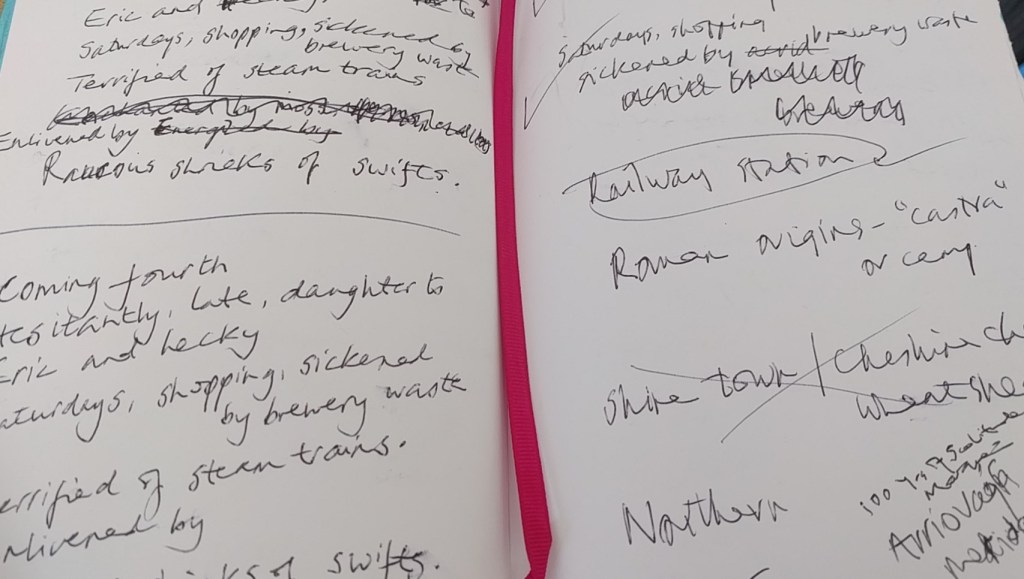 Eric and
Saturdays, shopping, sickened by
brewery waste
Terrified of steam trains
by most
Enlivened by Energized by
Raucous shrieks of swifts.
Coming fourth
Hesitantly, late, daughter to
Eric and hecky
Saturdays, shopping, sickened
by brewery waste
Terrified of steam trains.
Enlivened by
of swifts.
Saturdays, shopping
sickened by acrid brewery waste
Railway station
Roman origins - "castra"
or camp
Shire town / Cheshire ch
wheatshe
Northern
100 Yrs of Solitude
Marquez